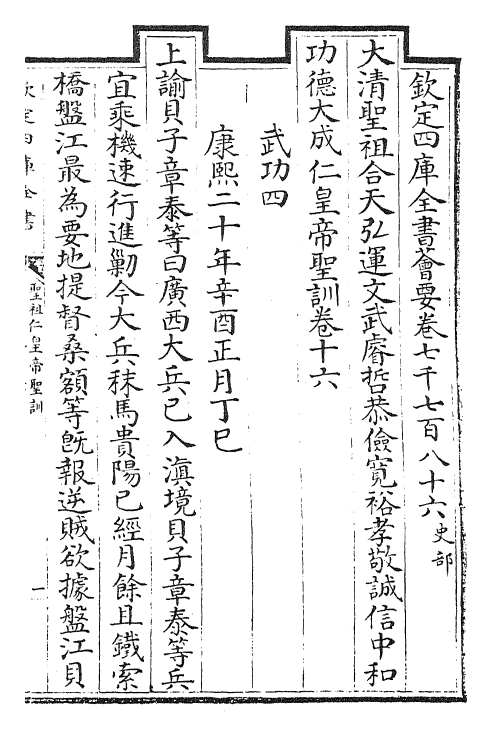 欽定四庫全書薈要卷七千七百八十六史部
大清聖祖合天弘運文武睿哲恭儉寬裕孝敬誠信中和
功德大成仁皇帝聖訓卷十六
武功四
康熙二十年辛酉正月丁巳
上諭貝子章泰等曰廣西大兵已入滇境貝子章泰等兵
宜乘機速行進勦今大兵秣馬貴陽已經月餘且鐵索
橋盤江最為要地提督桑額等既報逆賊欲據盤江貝
欽定四庫全書
聖祖仁皇帝聖訓
一